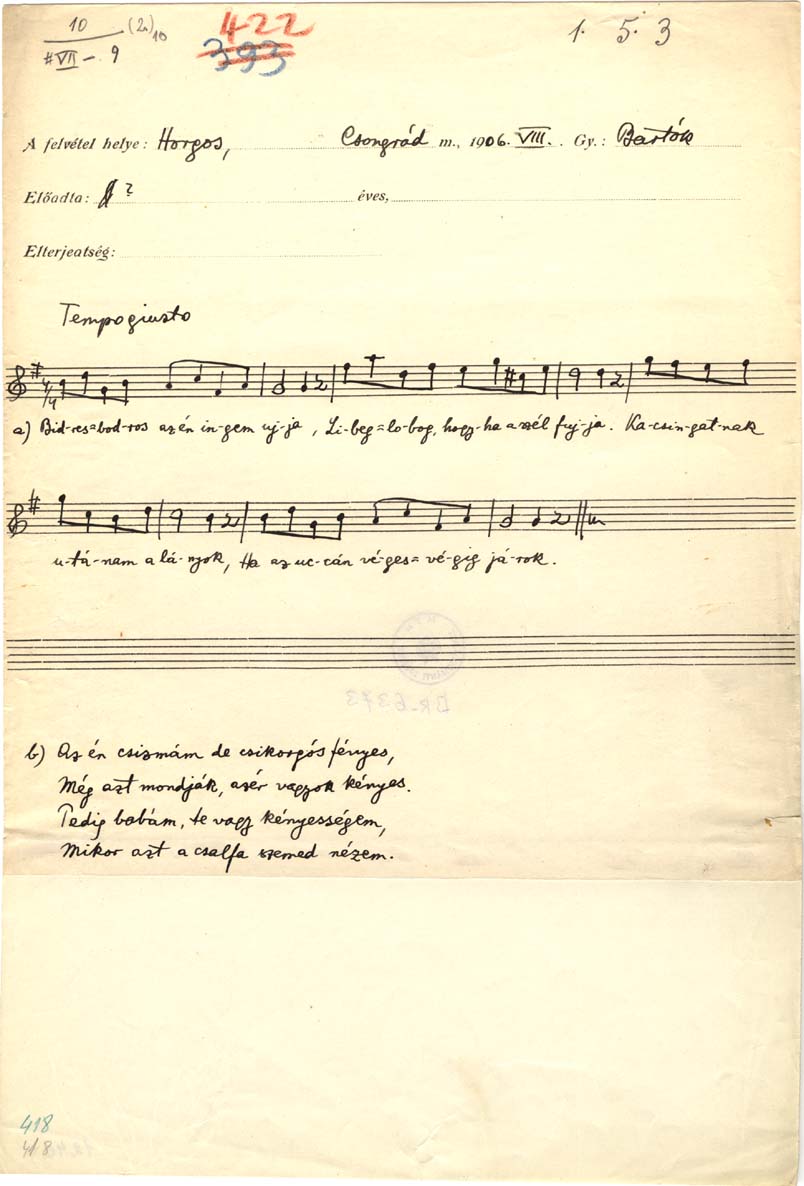 10 (2.) 10
#VII – 9
422
393
1. 5. 3
A felvétel helye: Horgos, Csongrád m., 1906. VIII. Gy.: Bartók
Előadta: ? éves,
Elterjedtség:
Tempo giusto
4/4
a) Bid-res=bod-ros az én in-gem uj-ja, Li-beg=lo-bog, hogy-ha a szél fuj-ja. Ka-csin-gat-nak
u-tá-nam a lá-nyok, Ha az uc-cán vé-ges=vé-gig já-rok.
BR-6373
b) Az én csizmám de csikorgós fényes,
Még azt mondják, azér vagyok kényes.
Pedig babám, te vagy kényességem,
Mikor azt a csalfa szemed nézem.
418
418